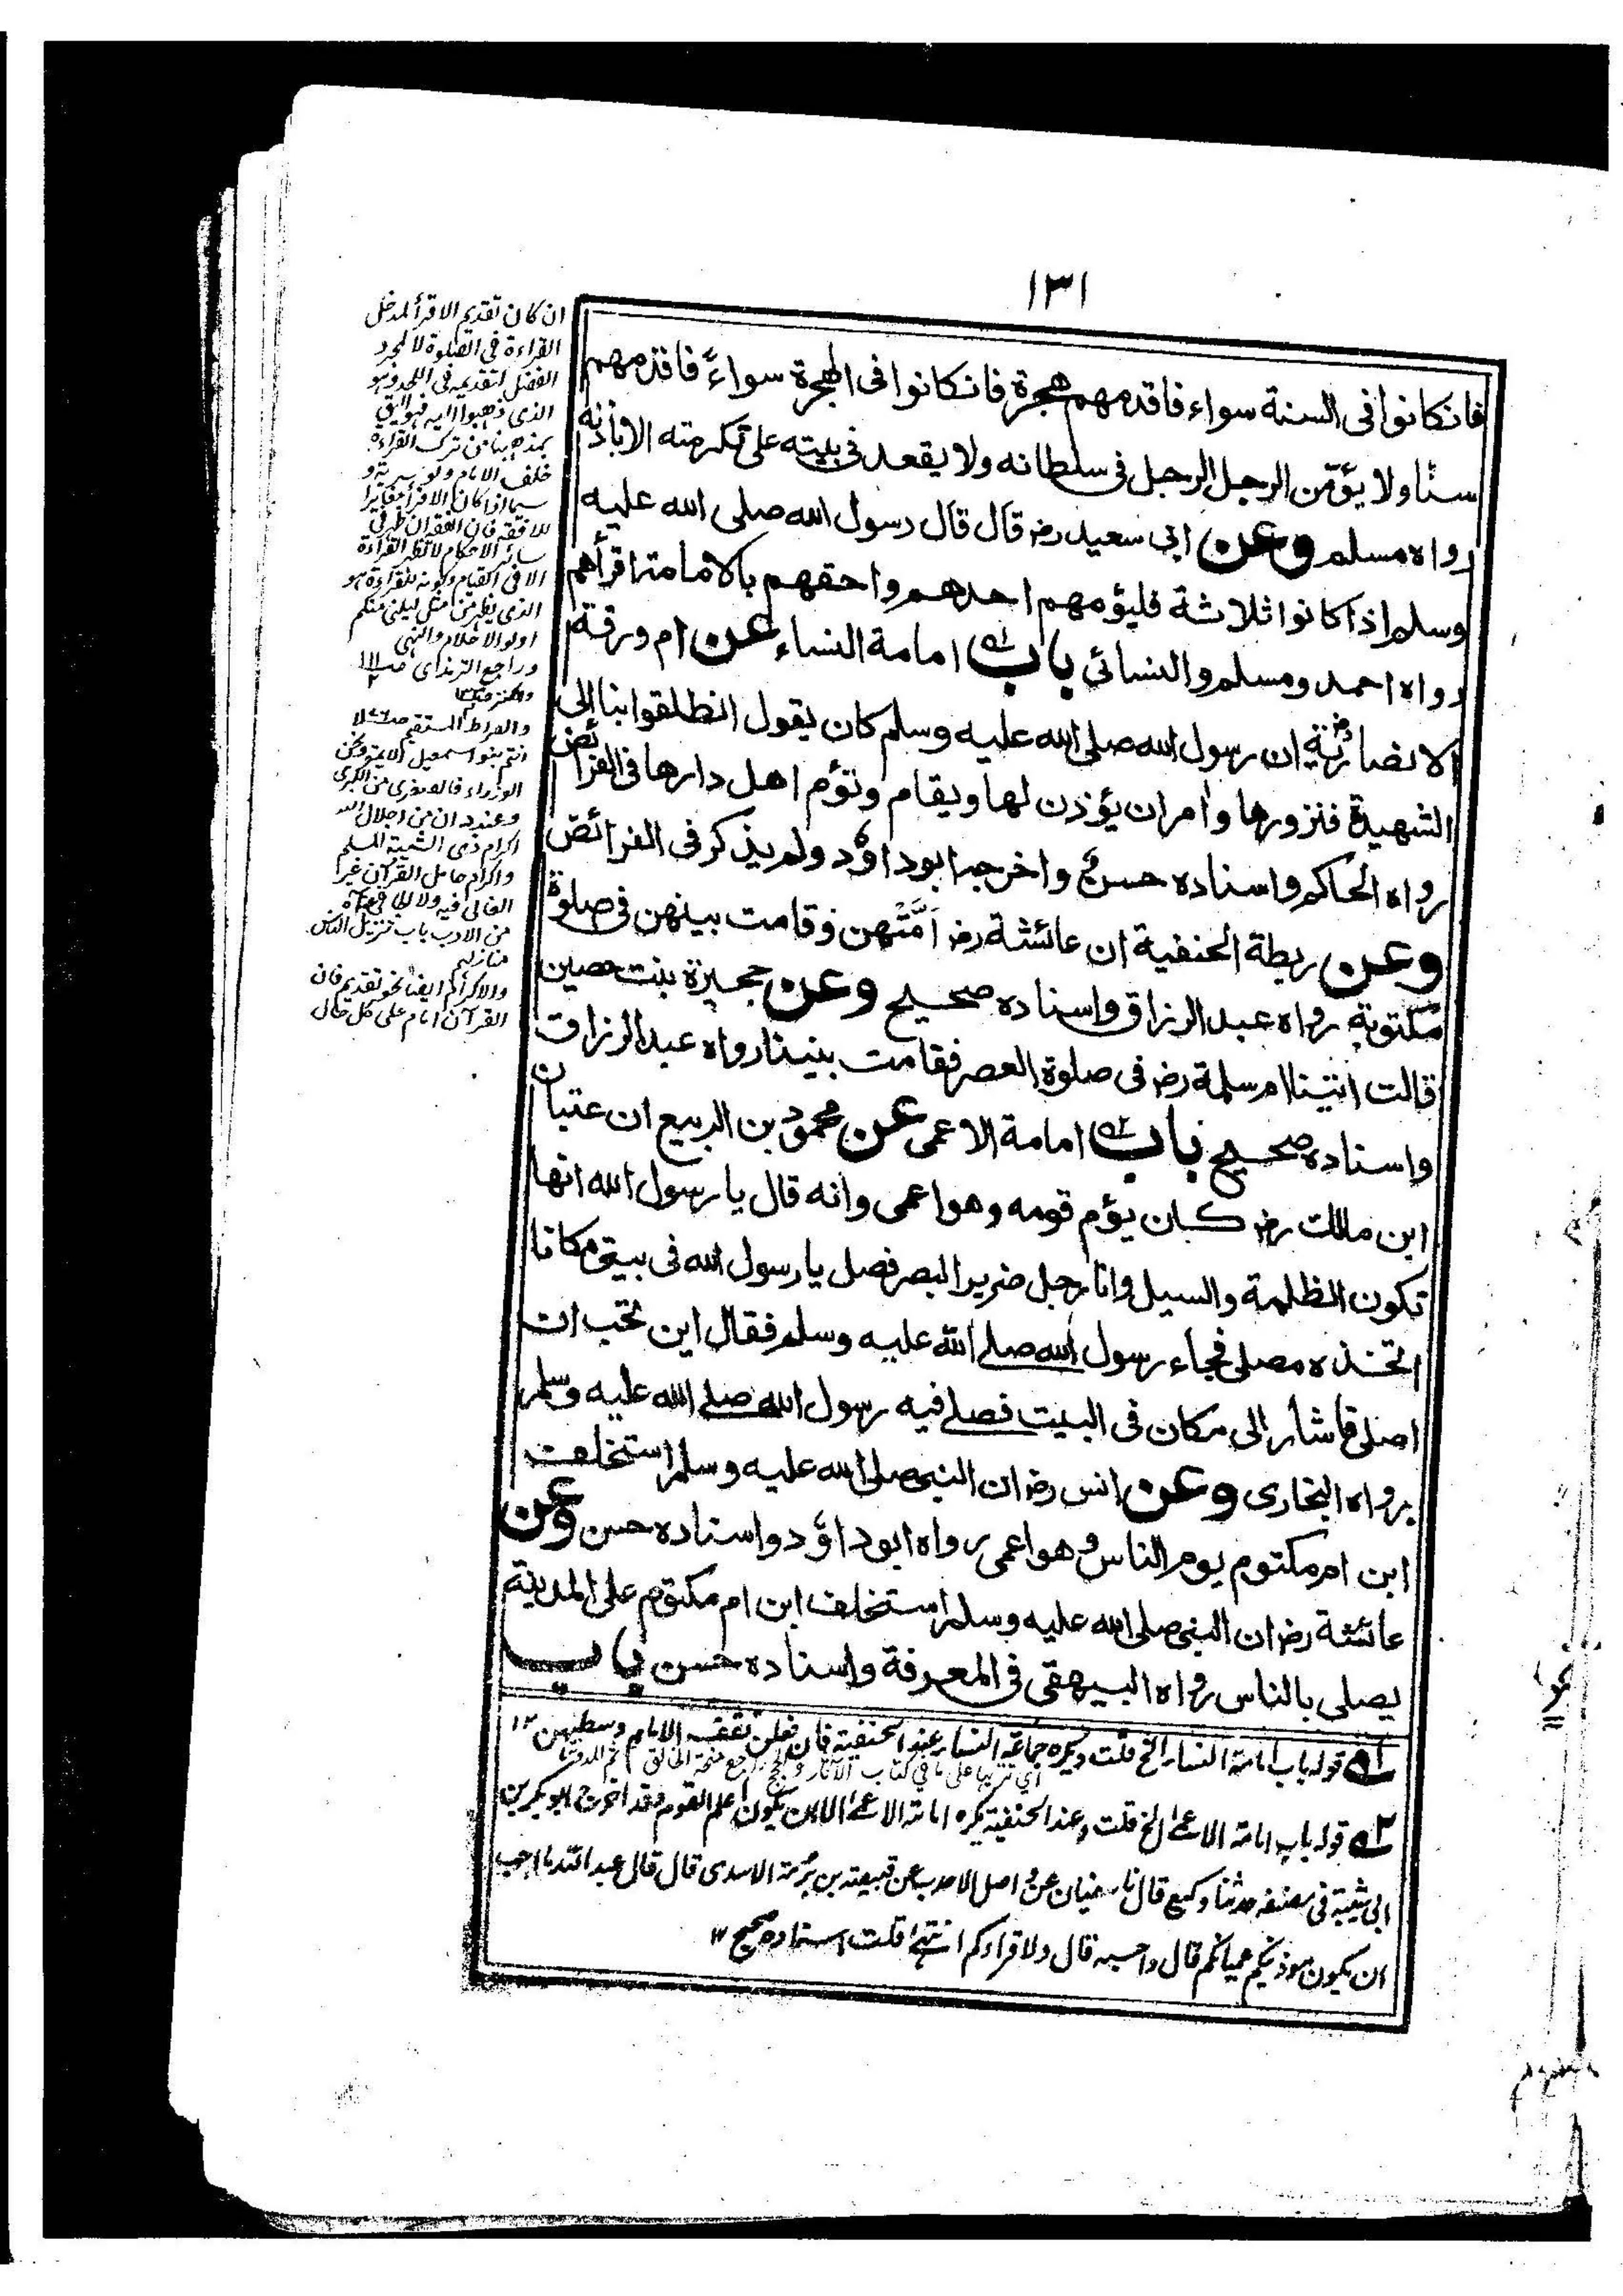 ١٣١
فانكانوا فى السنة سواء فاقدمهم هجرة فانكانوا فى الهجرة سواءً فاقدمهم
سنًا ولا يؤمّن الرجل الرجل فى سلطانه ولا يقعد فى بيته على تكرمته الا باذنه
رواه مسلم وعن ابى سعيد رض قال قال رسول الله صلى الله عليه
وسلم اذا كانوا ثلاثة فليؤمهم احدهم واحقهم بالامامة اقرأهم
رواه احمد ومسلم والنسائى باب امامة النساء عن ام ورقة
الانصارية رض ان رسول الله صلى الله عليه وسلم كان يقول انطلقوا بنا الى
الشهيدة فنزورها وامر ان يؤذن لها ويقام وتؤم اهل دارها فى الفرائض
رواه الحاكم واسناده حسن واخرجه ابو داؤد ولم يذكر فى الفرائض
وعن ريطة الحنفية ان عائشة رض اَمَّتْهن وقامت بينهن فى صلوة
مكتوبة رواه عبد الرزاق واسناده صحيح وعن حجيرة بنت حصين
قالت امتنا ام سلمة رض فى صلوة العصر فقامت بيننا رواه عبد الرزاق
واسناده صحيح باب امامة الاعمى عن محمود بن الربيع ان عتبان
ابن مالك رض كان يؤم قومه وهو اعمى وانه قال يا رسول الله انها
تكون الظلمة والسيل وانا رجل ضرير البصر فصل يا رسول الله فى بيتى مكانا
اتخذه مصلى فجاء رسول الله صلے الله عليه وسلم فقال اين تحب ان
اصلى فاشار الى مكان فى البيت فصلے فيه رسول الله صلے الله عليه وسلم
رواه البخارى وعن انس رض ان النبى صلى الله عليه وسلم استخلف
ابن ام مكتوم يوم الناس وهو اعمى رواه ابو داؤد واسناده حسن وعن
عائشة رض ان النبى صلى الله عليه وسلم استخلف ابن ام مكتوم على المدينة
يصلى بالناس رواه البيهقى فى المعرفة واسناده حسن باب
له قوله باب امامة النساء الخ قلت ويكره جماعة النساء عند الحنفية فان فعلن تقف الامام وسطهن ١٢
٢ه قوله باب امامة الاعمےٰ الخ قلت وعند الحنفية يكره امامة الاعمےٰ الا ان يكون اعلم القوم وقد اخرج ابو بكر بن
ابى شيبة فى مصنفه حدثنا وكيع قال نا سفيان عن واصل الاحدب عن قبيصة بن برمة الاسدى قال قال عبد الله ما احب
ان يكون موذنيكم عميانكم قال واحسبه قال ولا قراءكم انتهےٰ قلت اسناده صحيح ١٢
ان كان تقديم الاقرأ لمدخل
القراءة فى الصلوة لا لمجرد
الفضل لتقديمه فى اللحد وهو
الذى ذهبوا اليه
من ترك القراءة
خلف الامام
سيما اذا كان الاقرأ مغايرا
للافقه
سائر الاحكام
اولو الاحلام والنهى
وراجع الترمذى
والصراط المستقيم
وعند د ان من اجلال الله
اكرام ذى الشيبة المسلم
واكرام حامل القرآن غير
الغالى فيه
من الادب باب تنزيل الناس
منازلهم
والاكرام ايضا نحو تقديم فان
القرآن امام على كل حال